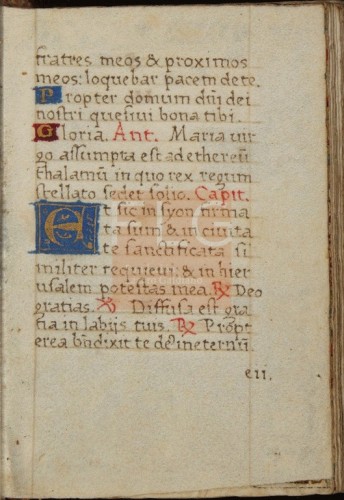 fratres meos & proximos
meos: loquebar pacem de te.
Propter domum dñi dei
nostri quesiui bona tibi.
Gloria. Ant. Maria uir
go assumpta est ad ethereũ
thalamũ in quo rex regum
stellato sedet solio. Capit.
Et sic in syon firma
ta sum & in ciuita
te sanctificata si
militer requieui: & in hier
usalem potestas mea. ℟ Deo
gratias. ℣ Diffusa est gra
tia in labijs tuis. ℟ Propt
erea bñdixit te de⁹ in eternũ
eii.